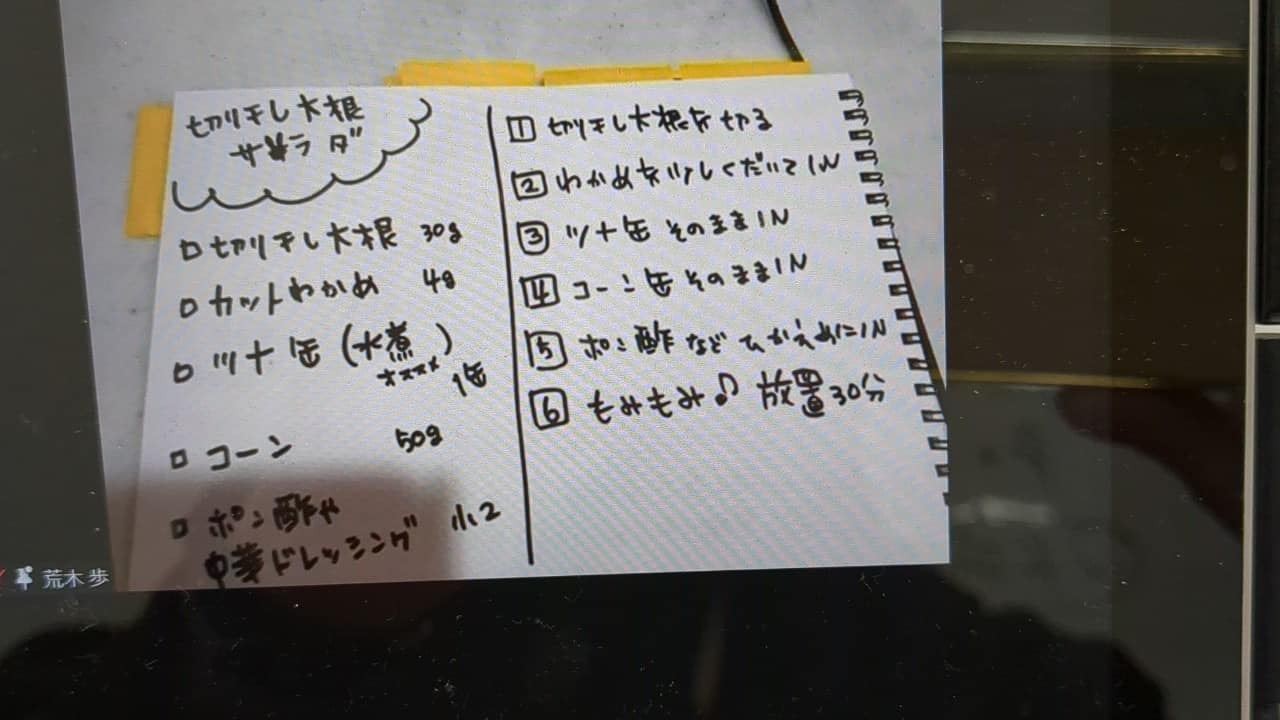 切り干し大根
サラダ
□ 切り干し大根 30g
□ カットわかめ 4g
□ ツナ缶 (水煮)
オススメ
1缶
□ コーン 50g
□ ポン酢や
中華ドレッシング 小2
1 切り干し大根を切る
2 わかめを少しくだいてIN
3 ツナ缶そのままIN
4 コーン缶そのままIN
5 ポン酢などひかえめにIN
6 もみもみ♪ 放置30分
荒木 歩